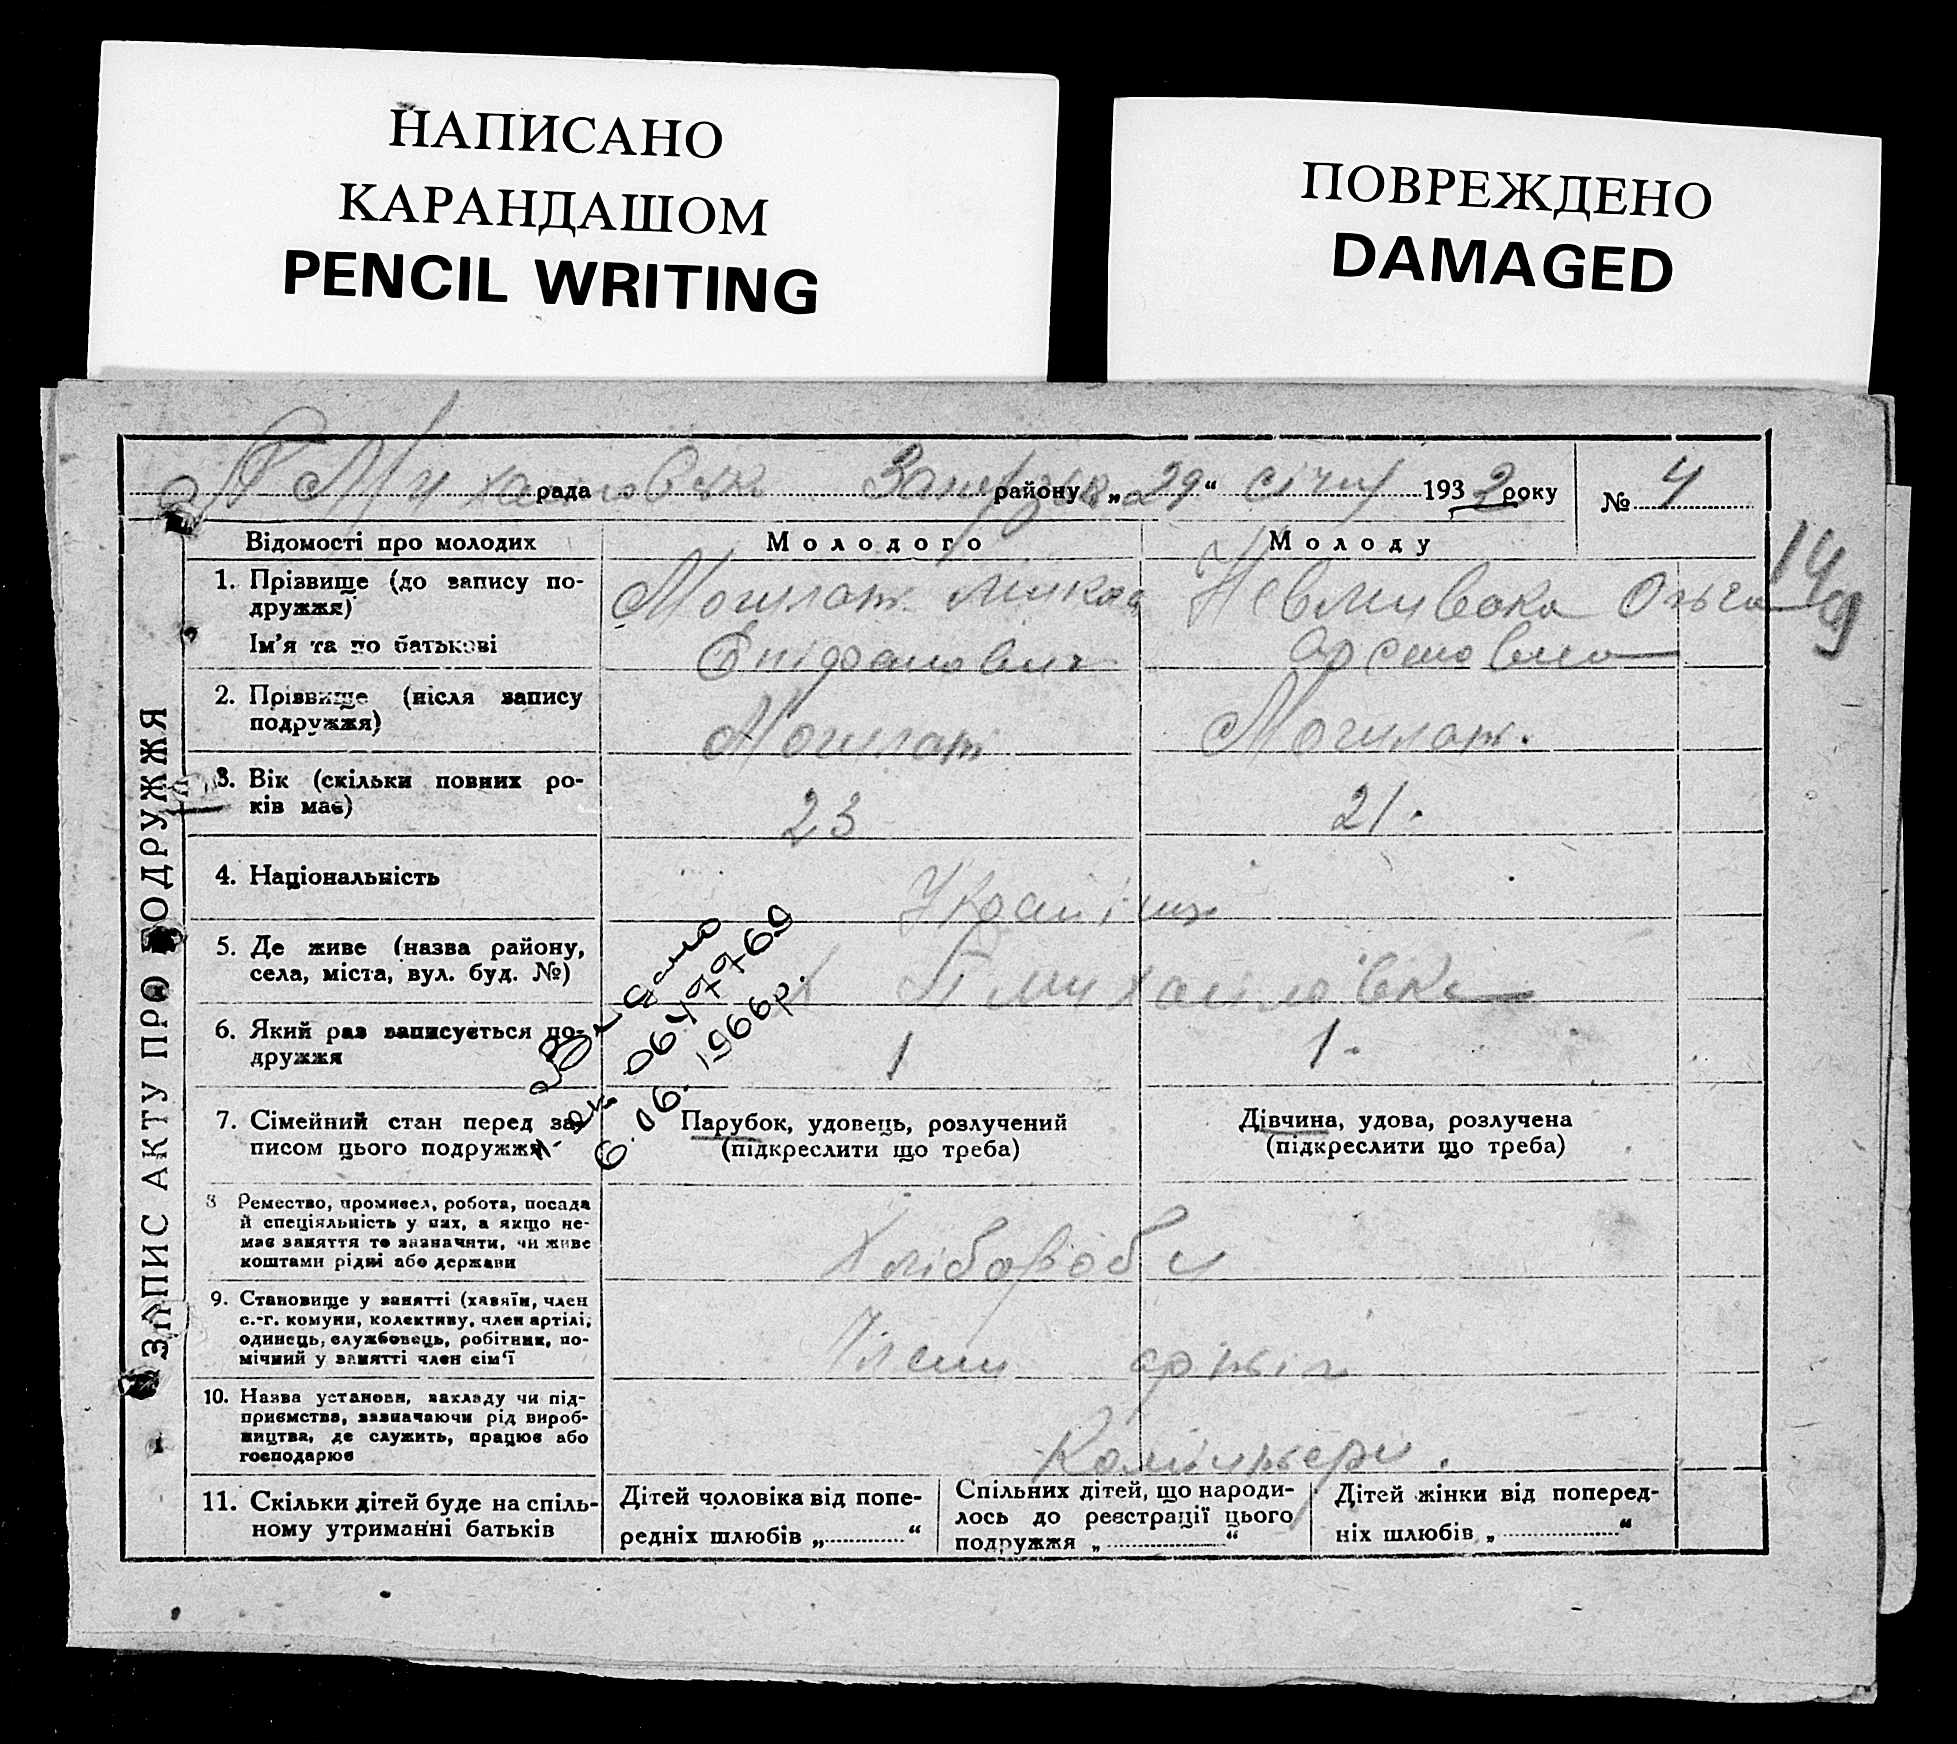 НАПИСАНО
КАРАНДАШОМ
PENCIL WRITING
ПОВРЕЖДЕНО
DAMAGED
рада району „29“ січня 1932 року № 4
149
ЗАПИС АКТУ ПРО ПОДРУЖЖЯ
Відомості про молодих Молодого Молоду
1. Прізвище (до запису по-
дружжя)
Ім'я та по батькові
Могилат Микола
Епіфанович
Невмивака Ольга
Арсеновна
2. Прізвище (після запису
подружжя)
Могилат
Могилат.
3. Вік (скільки повних ро-
ків має)
23
21.
4. Національність
Українці
5. Де живе (назва району,
села, міста, вул. буд. №)
Михайлівка
6. Який раз записується по-
дружжя
1
1.
7. Сімейний стан перед за-
писом цього подружжя
Парубок, удовець, розлучений
(підкреслити що треба)
Дівчина, удова, розлучена
(підкреслити що треба)
Видано
0647769
6.06.1966р.
8 Ремество, промисел, робота, посада
й спеціяльність у них, а якщо не-
має заняття то зазначити, чи живе
коштами рідні або держави
Хлібороби
9. Становище у занятті (хазяїн, член
с.-г. комуни, колективу, член артілі,
одинець, службовець, робітник, по-
мічний у занятті член сім'ї
Члени артіл
10. Назва установи, закладу чи під-
приємства, зазначаючи рід вироб-
ництва, де служить, працює або
господарює
11. Скільки дітей буде на спіль-
ному утриманні батьків
Дітей чоловіка від попе-
редніх шлюбів „ “
Спільних дітей, що народи-
лось до реєстрації цього
подружжя „ “
Дітей жінки від поперед-
ніх шлюбів „ “